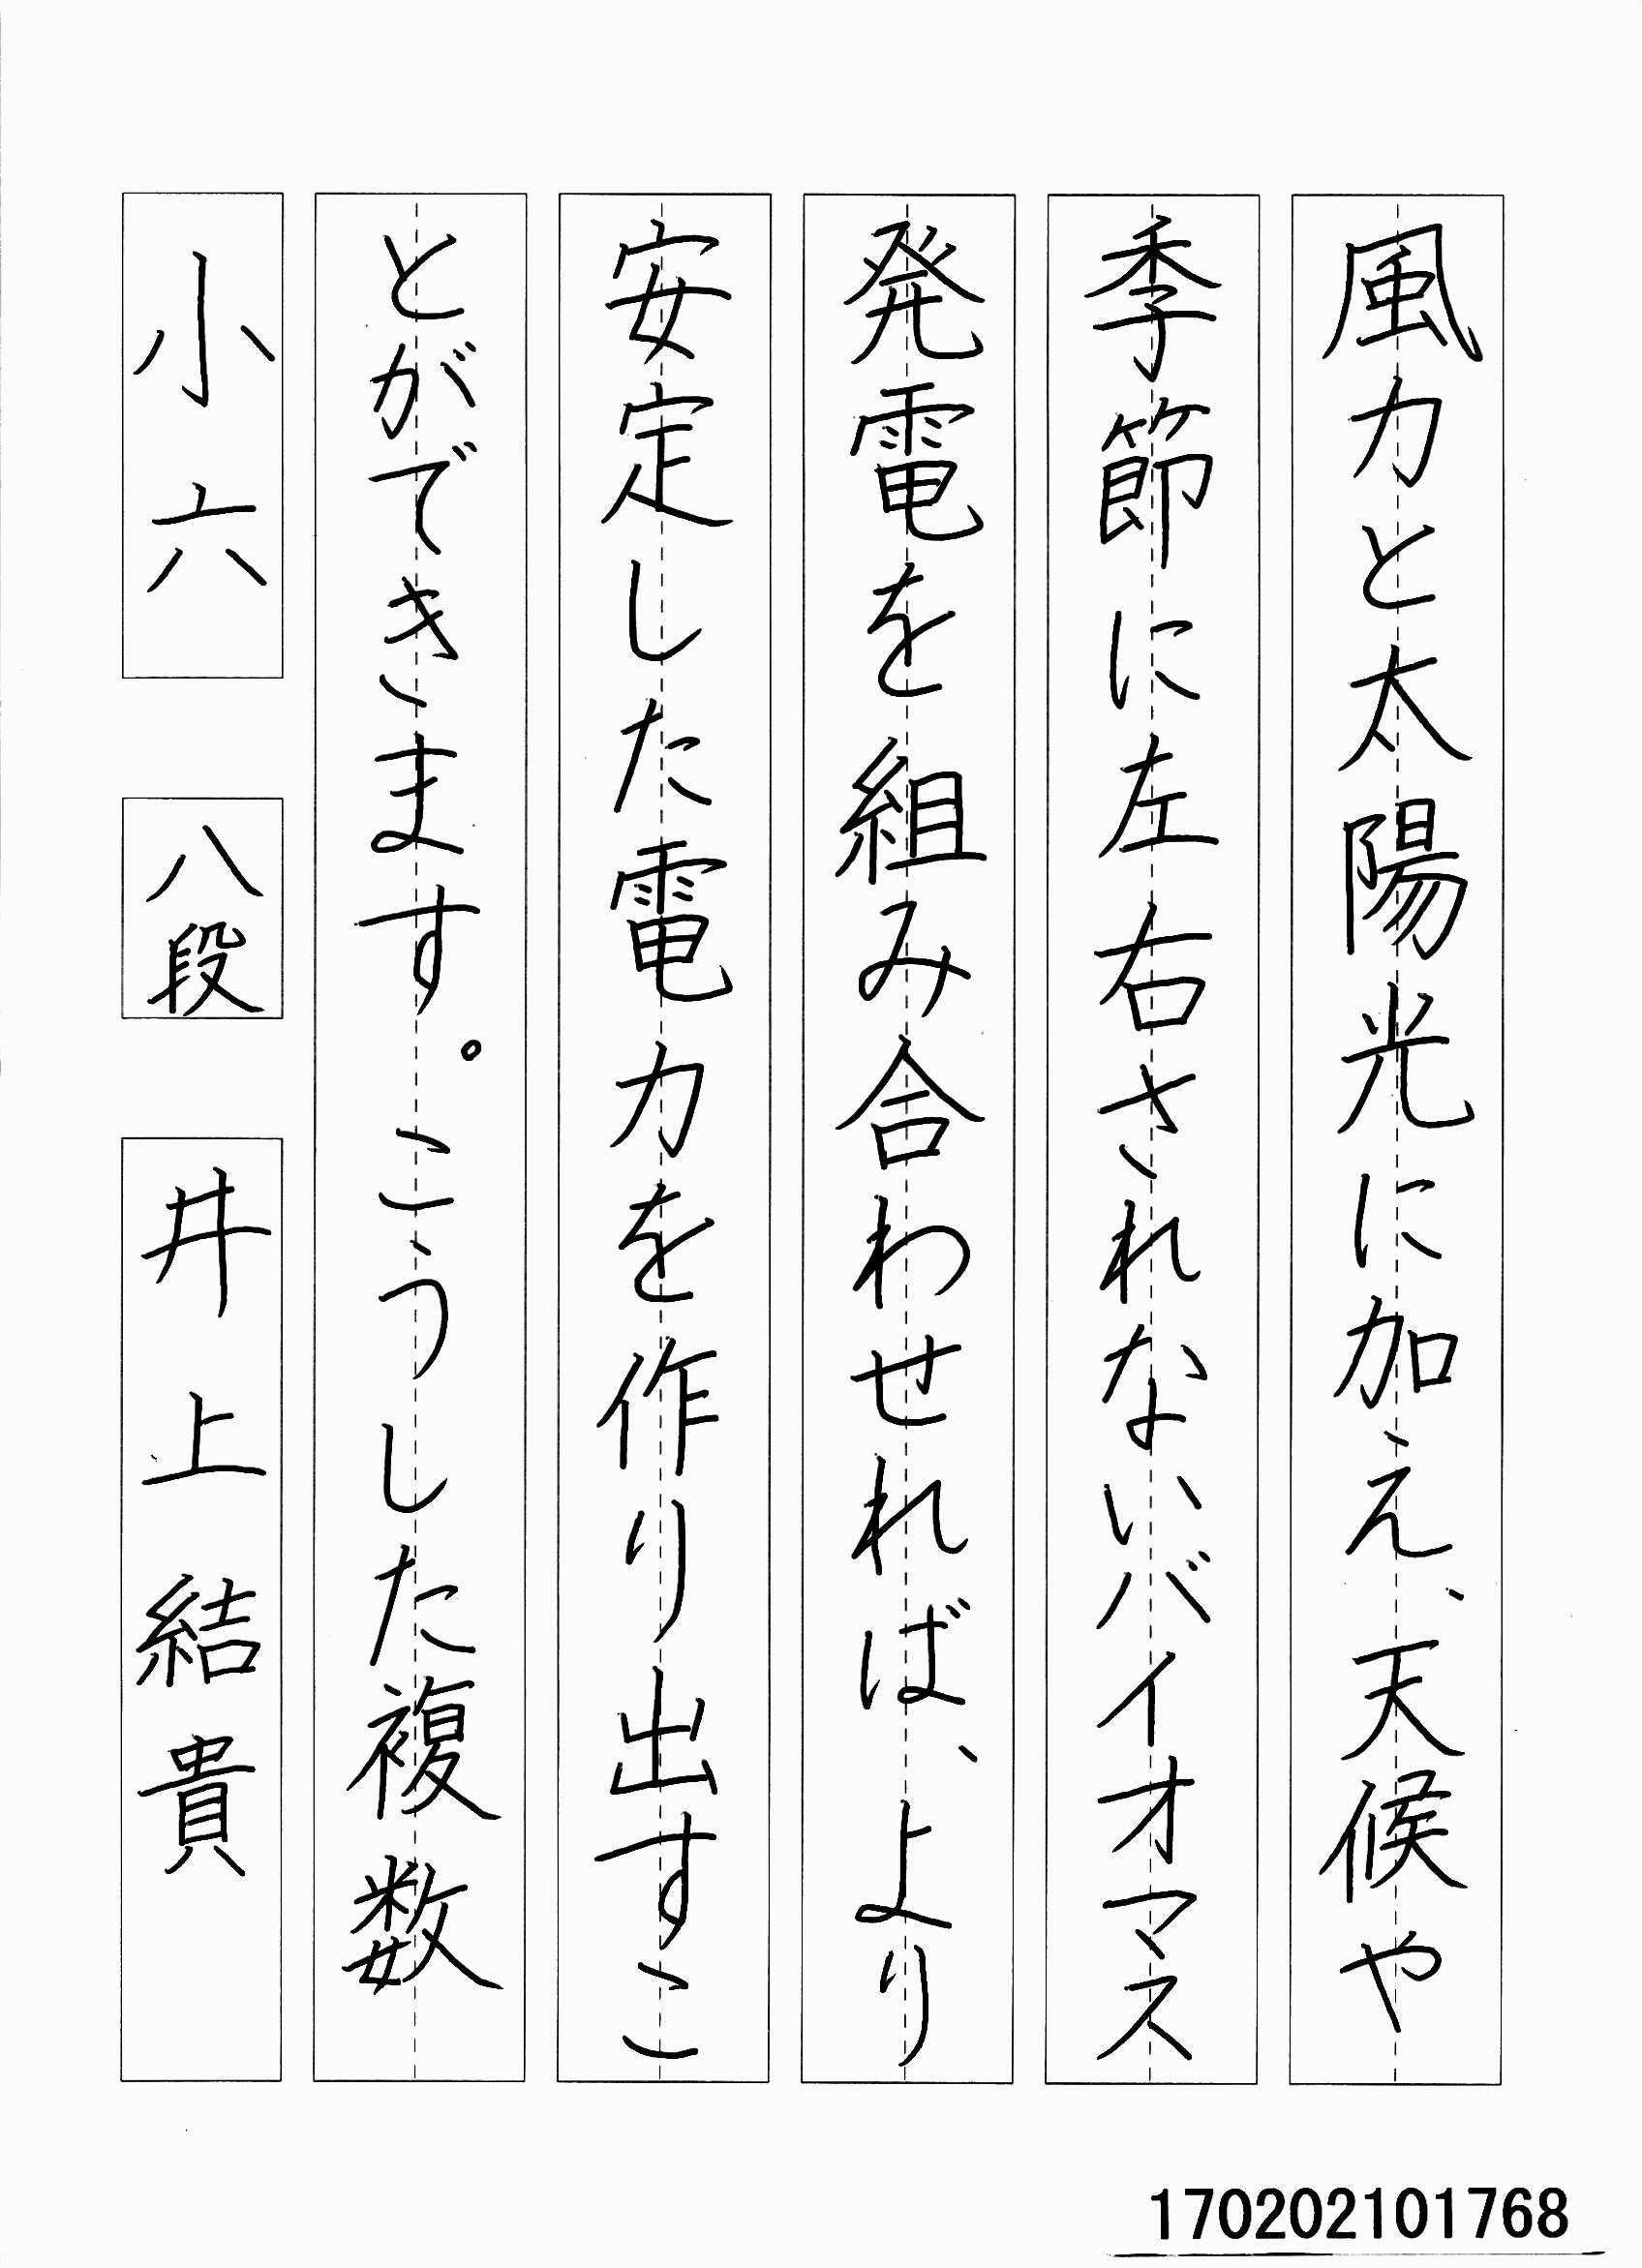 風力と太陽光に加え、天候や
季節に左右されないバイオマス
発電を組み合わせれば、より
安定した電力を作り出すこ
とができます。こうした複数
小六
八段
井上結貴
170202101768